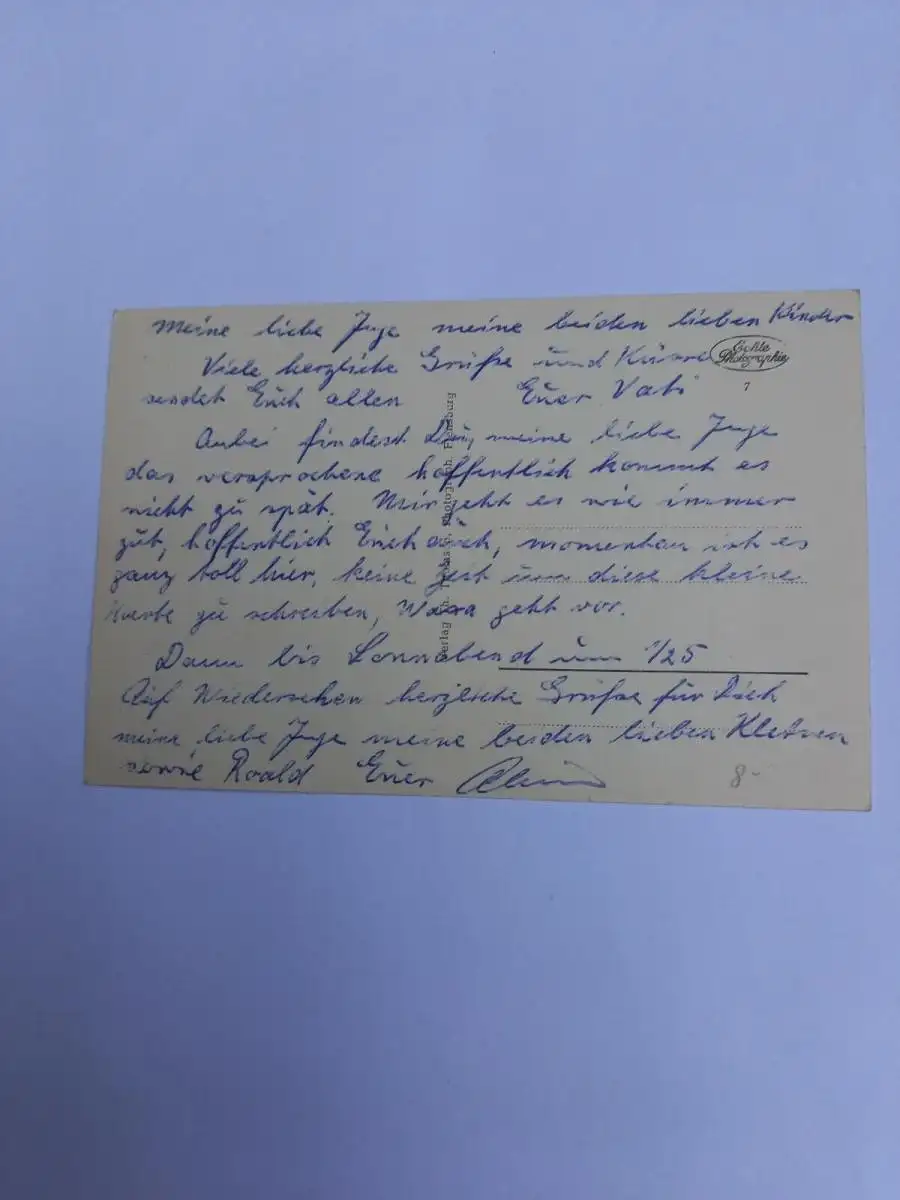 Meine liebe Inge meine beiden lieben Kinder
Viele herzliche Grüße und Küsse
sendet Euch allen Euer Vati
Echte
Photographie
7
Anbei findest Du, meine liebe Inge
das versprochene hoffentlich kommt es
nicht zu spät. Mir geht es wie immer
gut, hoffentlich Euch auch, momentan ist es
ganz toll hier, keine Zeit um diese kleine
Karte zu schreiben, geht vor.
Dann bis Sonnabend um 1/25
Auf Wiedersehen herzliche Grüße für Dich
meine liebe Inge meine beiden lieben Kleinen
sowie Roald Euer
8-
Verlag Photograph. Flensburg